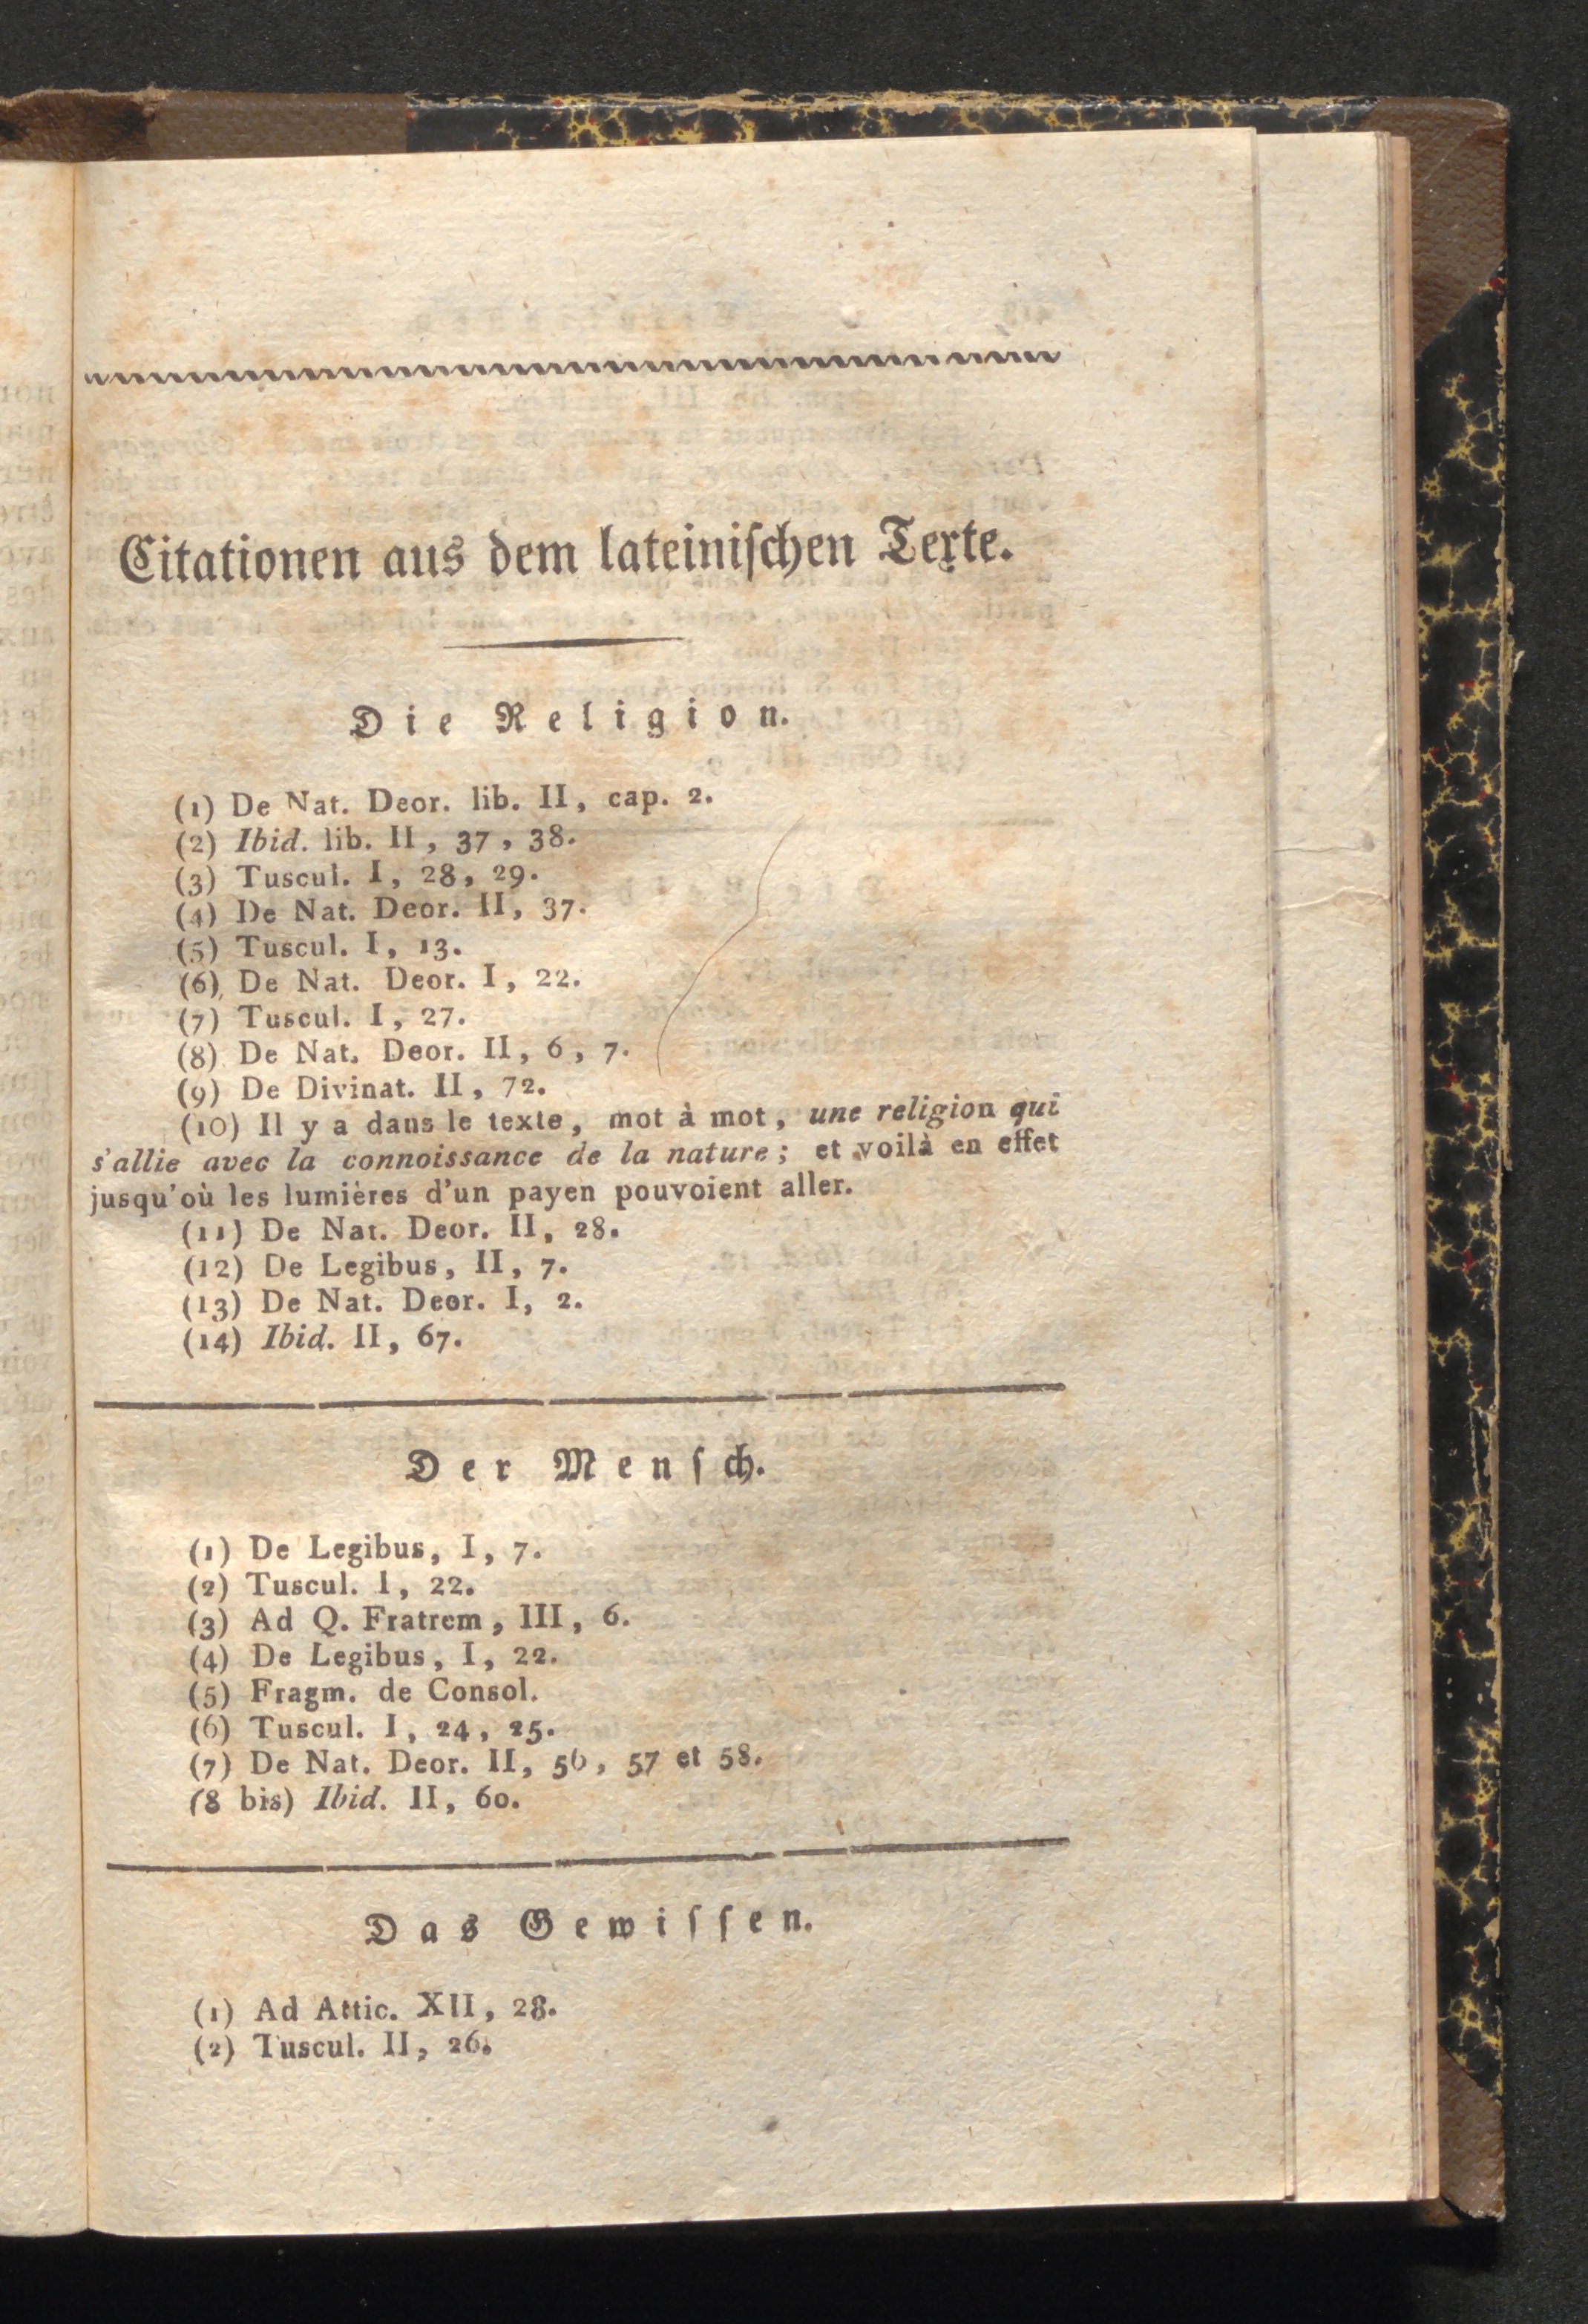 Citationen aus dem lateiniſchen Texte.
Die Religion.
(1) De Nat. Deor. lib. II, cap. 2.
(2) Ibid. lib. II, 37, 38.
(3) Tuscul. I, 28, 29.
(4) De Nat. Deor. II, 37.
(5) Tuscul. I, 13.
(6) De Nat. Deor. I, 22.
(7) Tuscul. I, 27.
(8) De Nat. Deor. II, 6, 7.
(9) De Divinat. II, 72.
(10) Il y a dans le texte, mot à mot, une religion qui
s'allie avec la connoissance de la nature; et voilà en effet
jusqu'où les lumières d'un payen pouvoient aller.
(11) De Nat. Deor. II, 28.
(12) De Legibus, II, 7.
(13) De Nat. Deor. I, 2.
(14) Ibid. II, 67.
Der Menſch.
(1) De Legibus, I, 7.
(2) Tuscul. I, 22.
(3) Ad Q. Fratrem, III, 6.
(4) De Legibus, I, 22.
(5) Fragm. de Consol.
(6) Tuscul. I, 24, 25.
(7) De Nat. Deor. II, 56, 57 et 58.
(8 bis) Ibid. II, 60.
Das Gewiſſen.
(1) Ad Attic. XII, 28.
(2) Tuscul. II, 26.